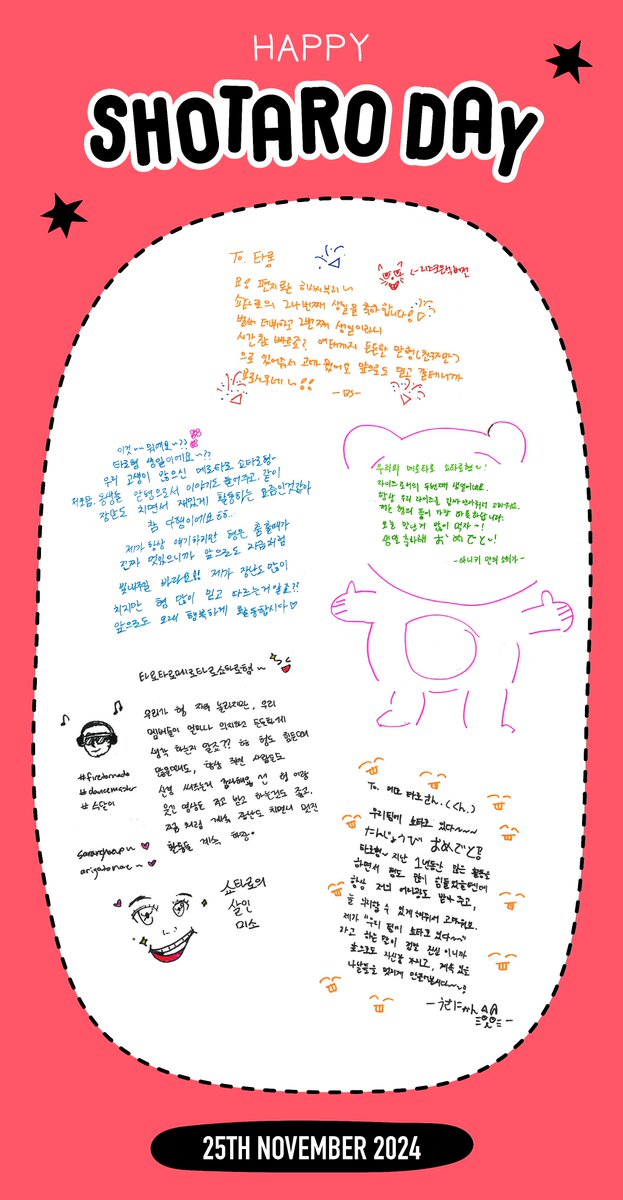 HAPPY
SHOTARO DAY
To. 타롱
쇼타로의 24번째 생일을 축하합니다!
벌써 데뷔하고 2번째 생일이라니
시간 참 빠르죠? 여태까지 든든한 맏형(친구지만)
으로 있어줘서 고마웠어 앞으로도 믿고 갈테니까
요로시쿠네~!!
이것~ 뭐예요~??
타로형 생일이에요~??
우리 고생이 많으신 메로타로 쇼타로형~
저포함, 동생들 맏형으로서 이야기도 들어주고, 같이
장난도 치면서 재밌게 활동하는 요즘인것같아
참 다행이에요ㅎㅎ..
제가 항상 얘기하지만 형은 춤출때가
진짜 멋있으니까 앞으로도 지금처럼
빛내주길 바라요!! 제가 장난도 많이
치지만 형 많이 믿고 따르는거 알죠?!
앞으로도 오래 행복하게 활동합시다♡
우리의 메로타로 쇼타로형~!
라이즈로서의 두번째 생일이네요.
항상 우리 라이즈를
저는 형의 춤이 가장
오늘 맛난거 많이 먹자~!
생일 축하해 おめでと~!
타로타로메로타로쇼타로형~
우리가 형 자주 놀리지만, 우리
멤버들이 얼마나 의지하고 든든하게
생각 하는지 알죠??
많을텐데도, 항상 작은 사람들도
신경 써주는거 감사해요 형 이랑
웃긴 영상도 주고 받고 하는것도 좋고.
지금 처럼 계속 장난도 치면서 멋진
활동들 계속 하장.
#firetornado
#dancemaster
#쇼단이
saranghaeyo~
arigatonae~
쇼타로의
살인
미소
To. 메로 타로さん.(くん)
우리팀에 쇼타로 있다~~~
たんじょうび おめでとう
타로형~ 지난 1년동안 많은 활동을
하면서 형도 많이 힘들었을텐데
항상 저의 어리광도 받아 주고,
고마워요.
제가 "우리 팀에 쇼타로 있다~~"
라고 하는 말이 정말 진심 이니까
앞으로도 자신감 가지고, 계속 있을
나날들을 멋지게 만들어봅시다~!
25TH NOVEMBER 2024